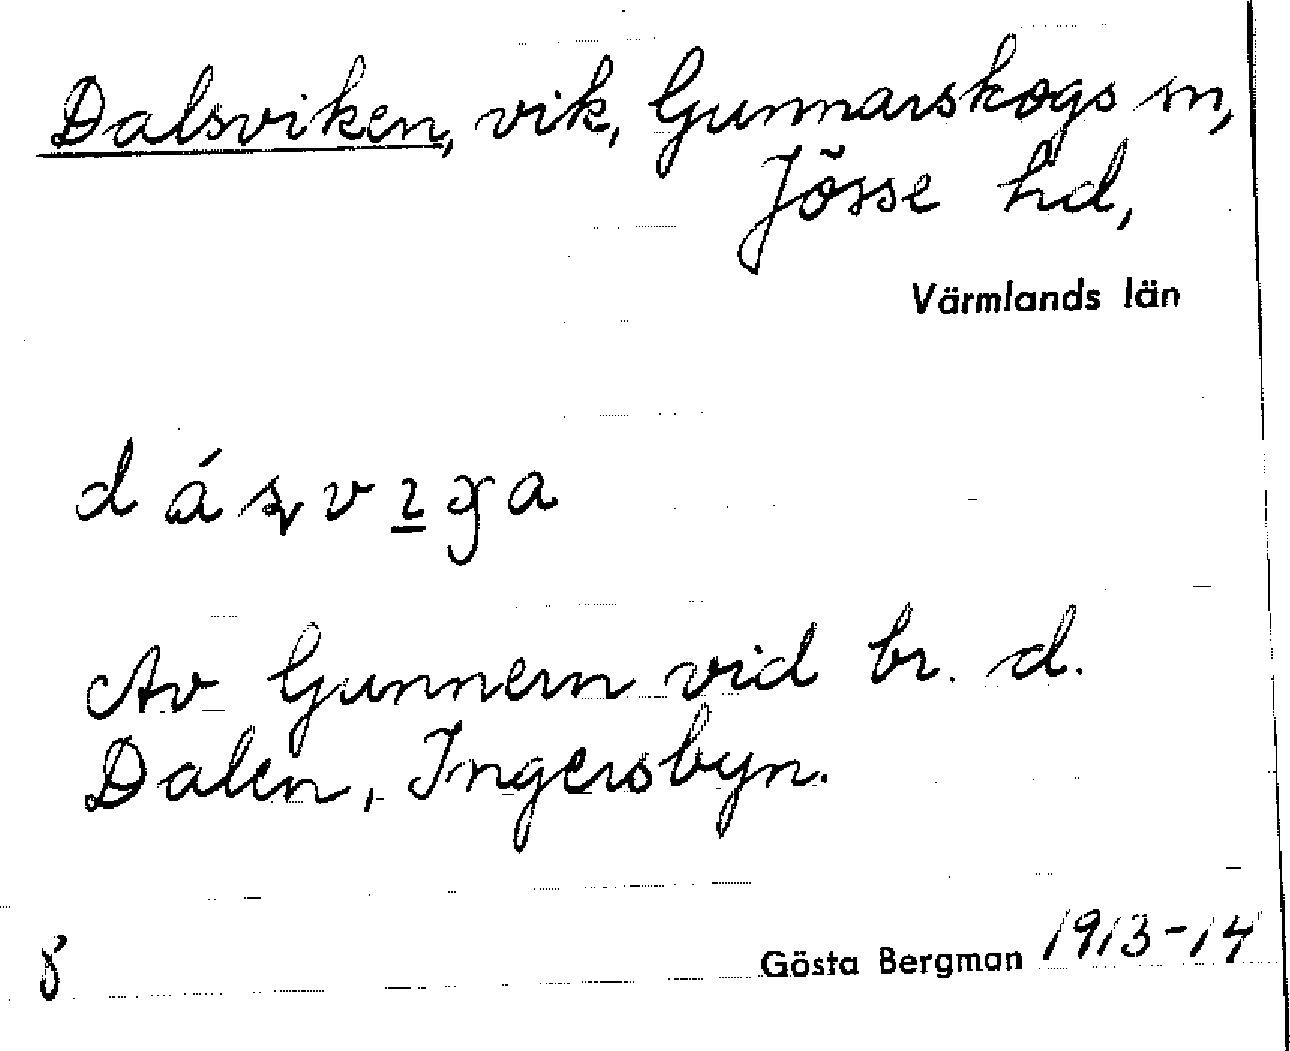 Dalsviken, vik, Gunnarskogs sn,
Jösse hd,
Värmlands län
Av Gunnern vid br. d.
Dalen, Ingersbyn.
8
Gösta Bergman 1913-14